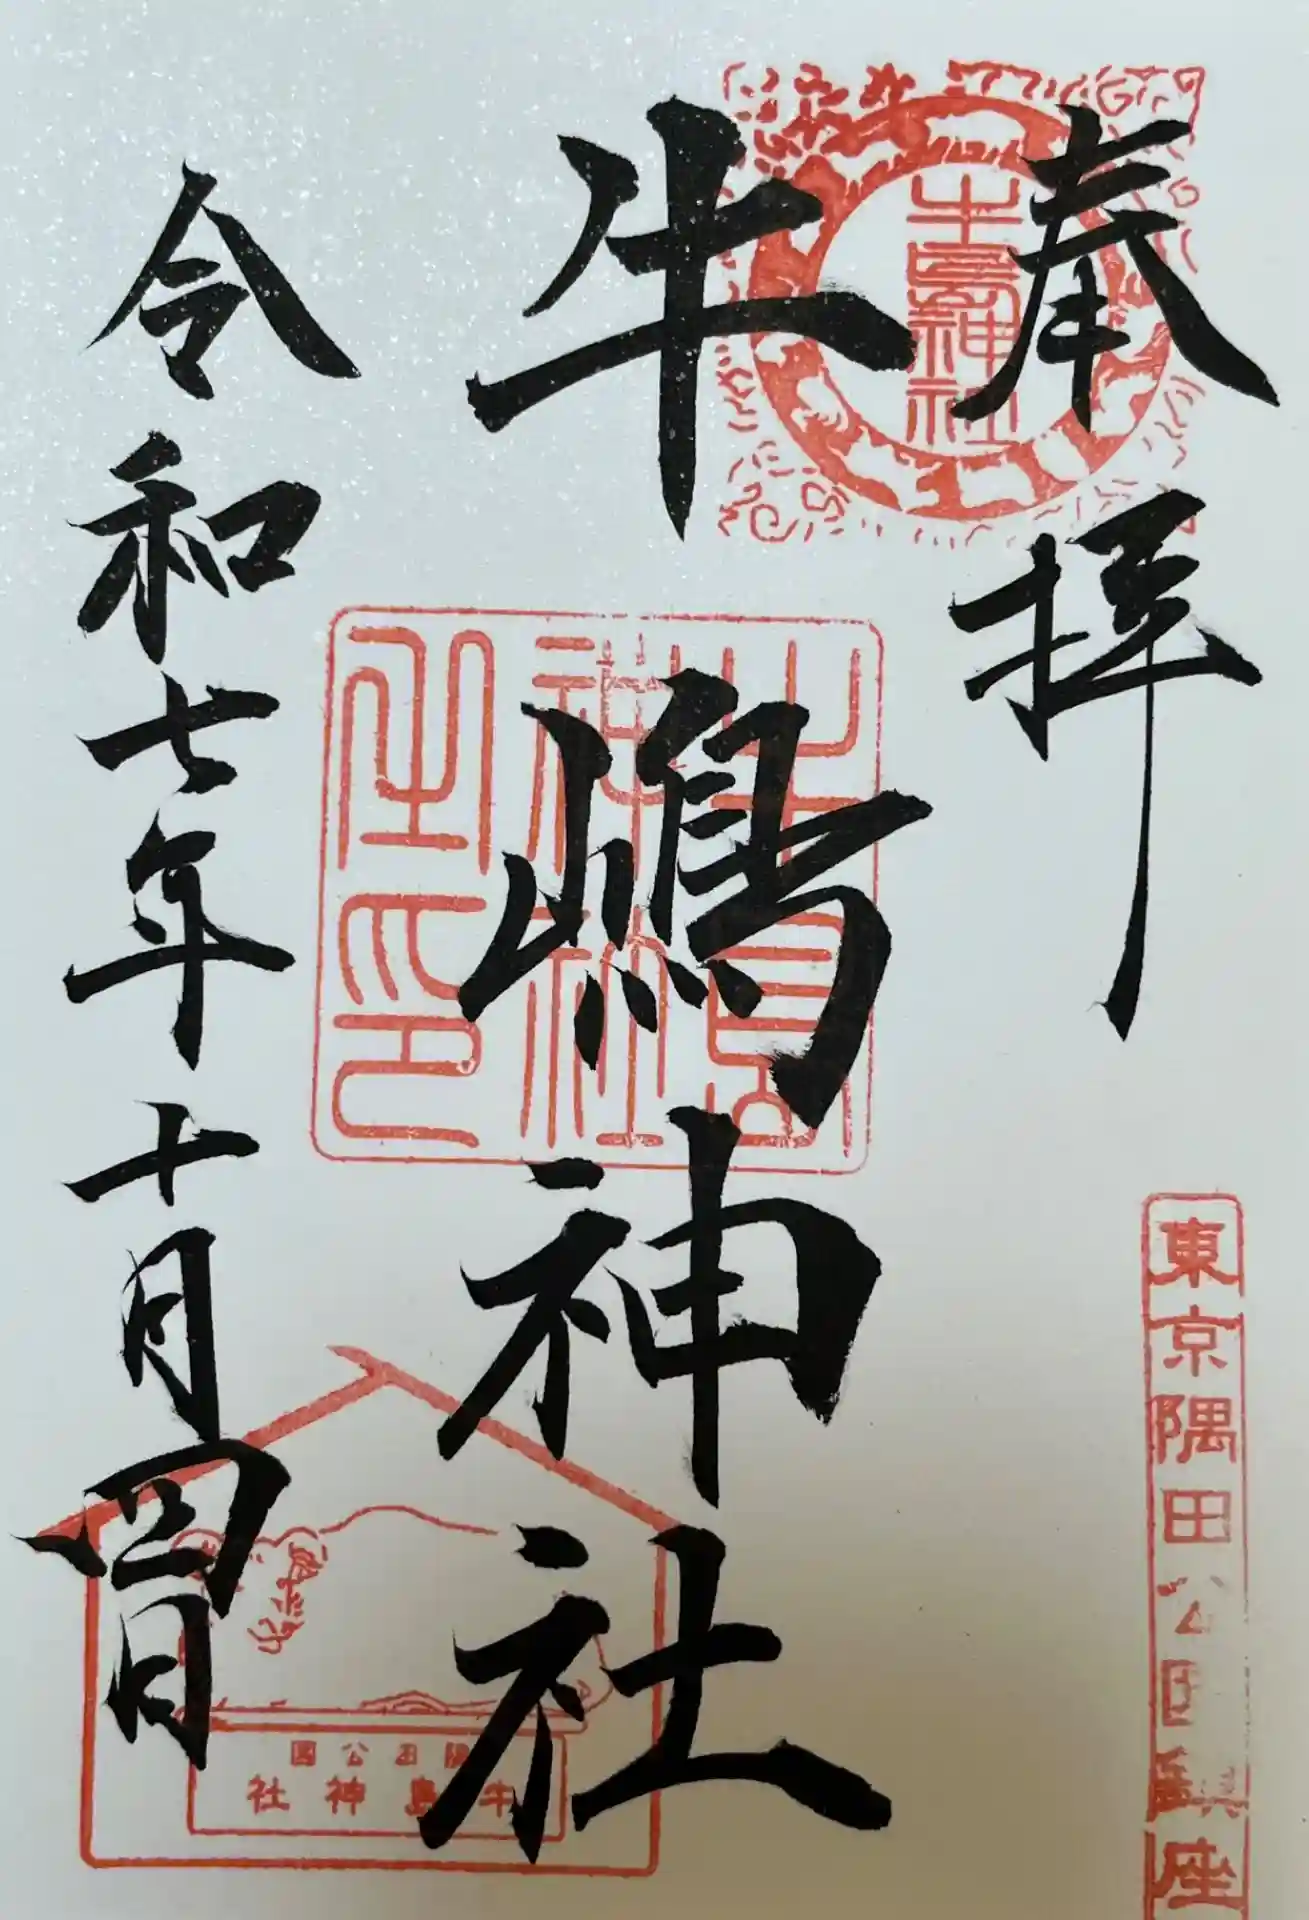 奉拝
牛嶋神社
令和七年十月四日
牛嶋神社
牛嶋神社之印
東京隅田公園鎮座
隅田公園
牛島神社